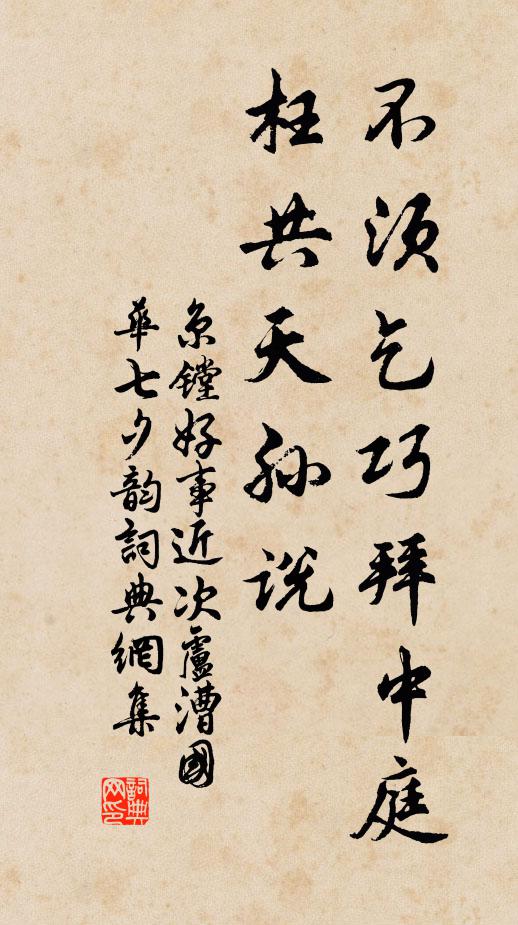 不须乞巧拜中庭
枉共天孙说
京镗好事近次盧漕國
華七夕韵詞典網集
詞典网印